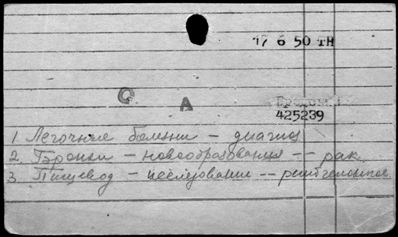 17 6 50 ТН
С А
425239
1 Легочные болезни – диагноз
2 Бронхи – новообразования -- рак
3 Пищевод – исследование -- рентгеновское